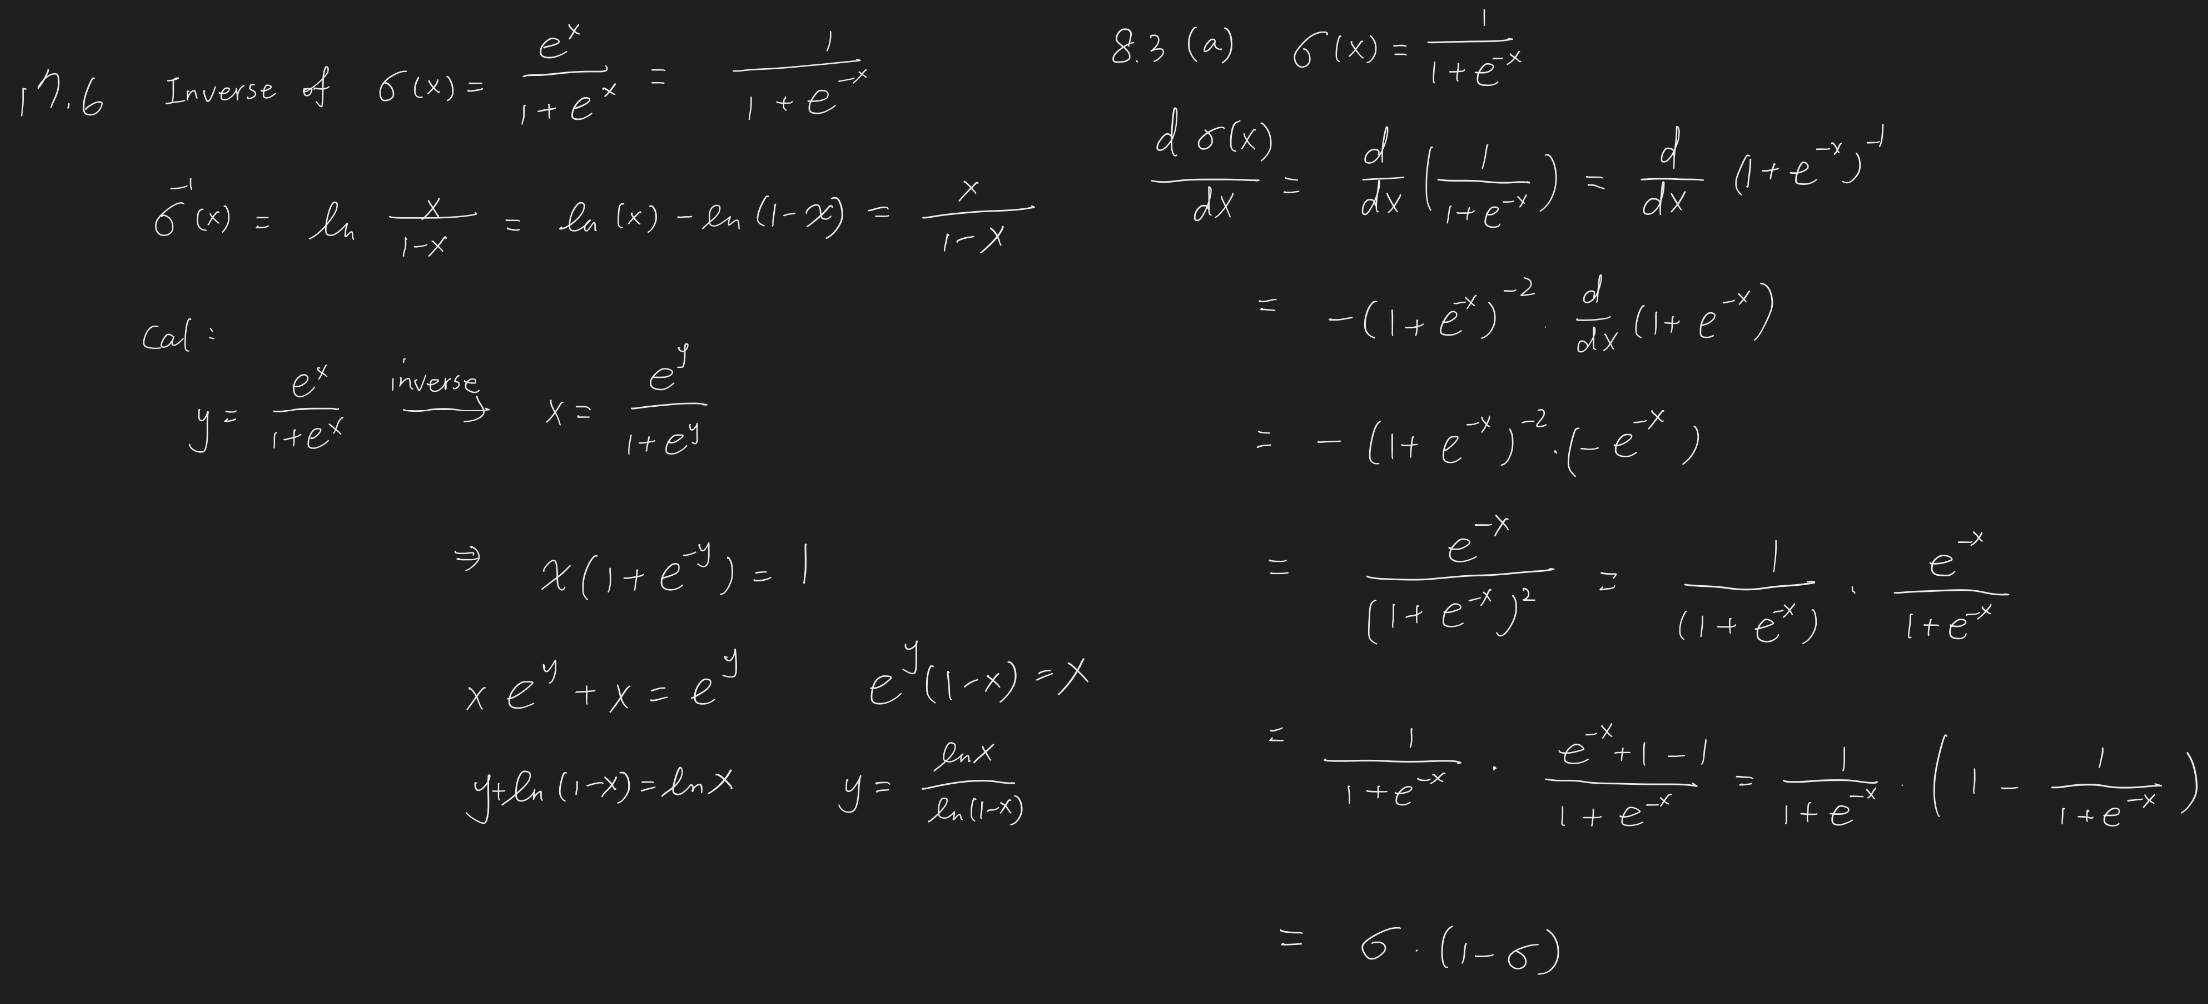 17.6 Inverse of σ(x) = e^x / (1 + e^x) = 1 / (1 + e^{-x})
σ^{-1}(x) = ln x/(1-x) = ln(x) - ln(1-x) = x/(1-x)
Cal:
y = e^x/(1+e^x) inverse→ x = e^y/(1+e^y)
⇒ x(1+e^{-y}) = 1
x e^y + x = e^y e^y(1-x) = x
y+ln(1-x) = lnx y = lnx/ln(1-x)
8.3 (a) σ(x) = 1/(1+e^{-x})
dσ(x)/dx = d/dx (1/(1+e^{-x})) = d/dx (1+e^{-x})^{-1}
= -(1+e^{-x})^{-2} · d/dx (1+e^{-x})
= -(1+e^{-x})^{-2} · (-e^{-x})
= e^{-x}/(1+e^{-x})^2 = 1/(1+e^{-x}) · e^{-x}/(1+e^{-x})
= 1/(1+e^{-x}) · (e^{-x}+1-1)/(1+e^{-x}) = 1/(1+e^{-x}) · (1 - 1/(1+e^{-x}))
= σ · (1-σ)